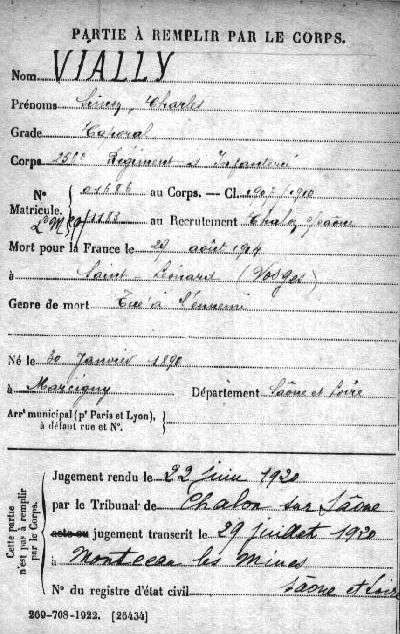 PARTIE À REMPLIR PAR LE CORPS.
Nom VIALLY
Prénoms Charles
Grade Caporal
Corps Régiment d'Infanterie
N° 01686 au Corps. — Cl. 1910
Matricule. 1188 au Recrutement Chalon s/Saône
Mort pour la France le 29 août 1914
à Saint-Léonard (Vosges)
Genre de mort Tué à l'ennemi
Né le 30 Janvier 1890
à Marcigny Département Saône et Loire
Arrt municipal (pr Paris et Lyon),
à défaut rue et N°.
Cette partie n'est pas à remplir par le Corps.
Jugement rendu le 22 juin 1920
par le Tribunal de Chalon sur Saône
acte ou jugement transcrit le 29 juillet 1920
à Montceau les Mines
N° du registre d'état civil Saône et Loire
269-708-1922. [26434]